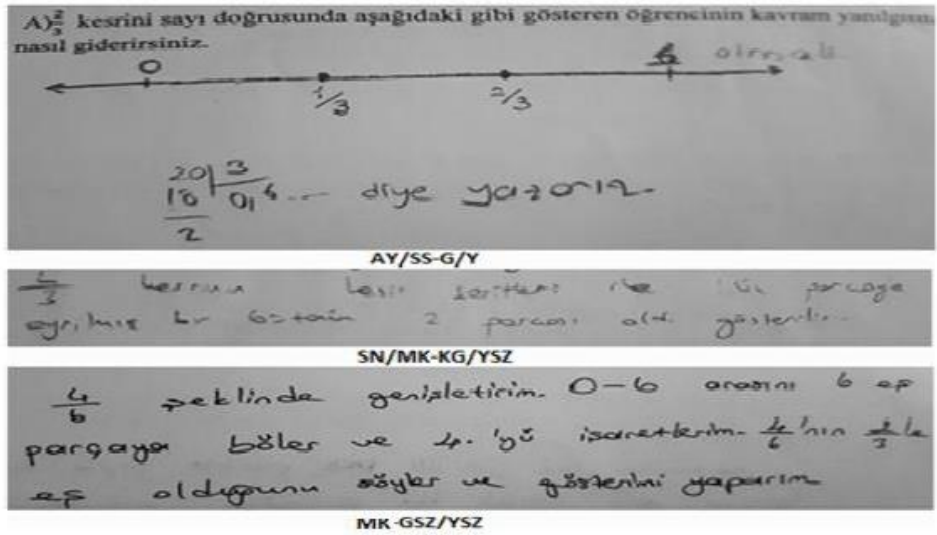 A) 2/3 kesrini sayı doğrusunda aşağıdaki gibi gösteren öğrencinin kavram yanılgısını
nasıl giderirsiniz.
0 6 olmalı
1/3 2/3
20 | 3
18 0,6... diye yazarız.
2
AY/SS-G/Y
kesrinin kesir şeritleri ile üç parçaya
ayrılmış bir 2 parçası gösterilir.
SN/MK-KG/YSZ
4/6 şeklinde genişletirim. 0-6 arasını 6 eş
parçaya böler ve 4.'yü işaretlerim. 4/6'nın 2/3'le
eş olduğunu söyler ve gösterimi yaparım
MK-GSZ/YSZ